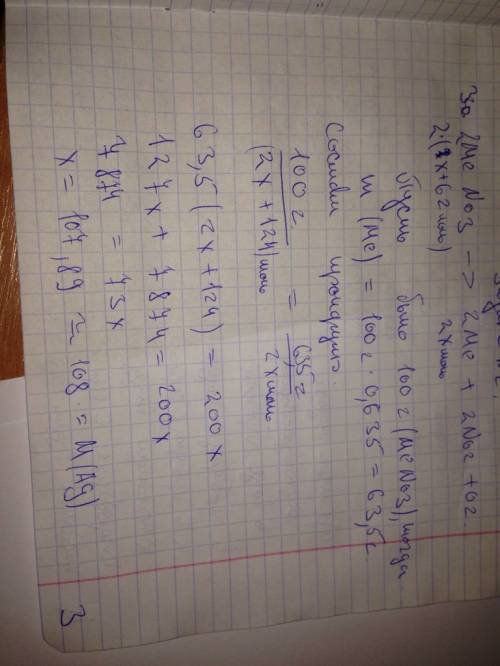 3a 2MeNO3 -> 2Me + 2NO2 + O2
2·(x+62 моль) 2x моль
Пусть было 100 г (MeNO3), тогда
m (Me) = 100 г · 0,635 = 63,5 г
Составим пропорцию.
100 г / (2x + 124) моль = 63,5 г / 2x моль
63,5 (2x + 124) = 200x
127x + 7874 = 200x
7874 = 73x
x = 107,89 ≃ 108 = M(Ag)
3